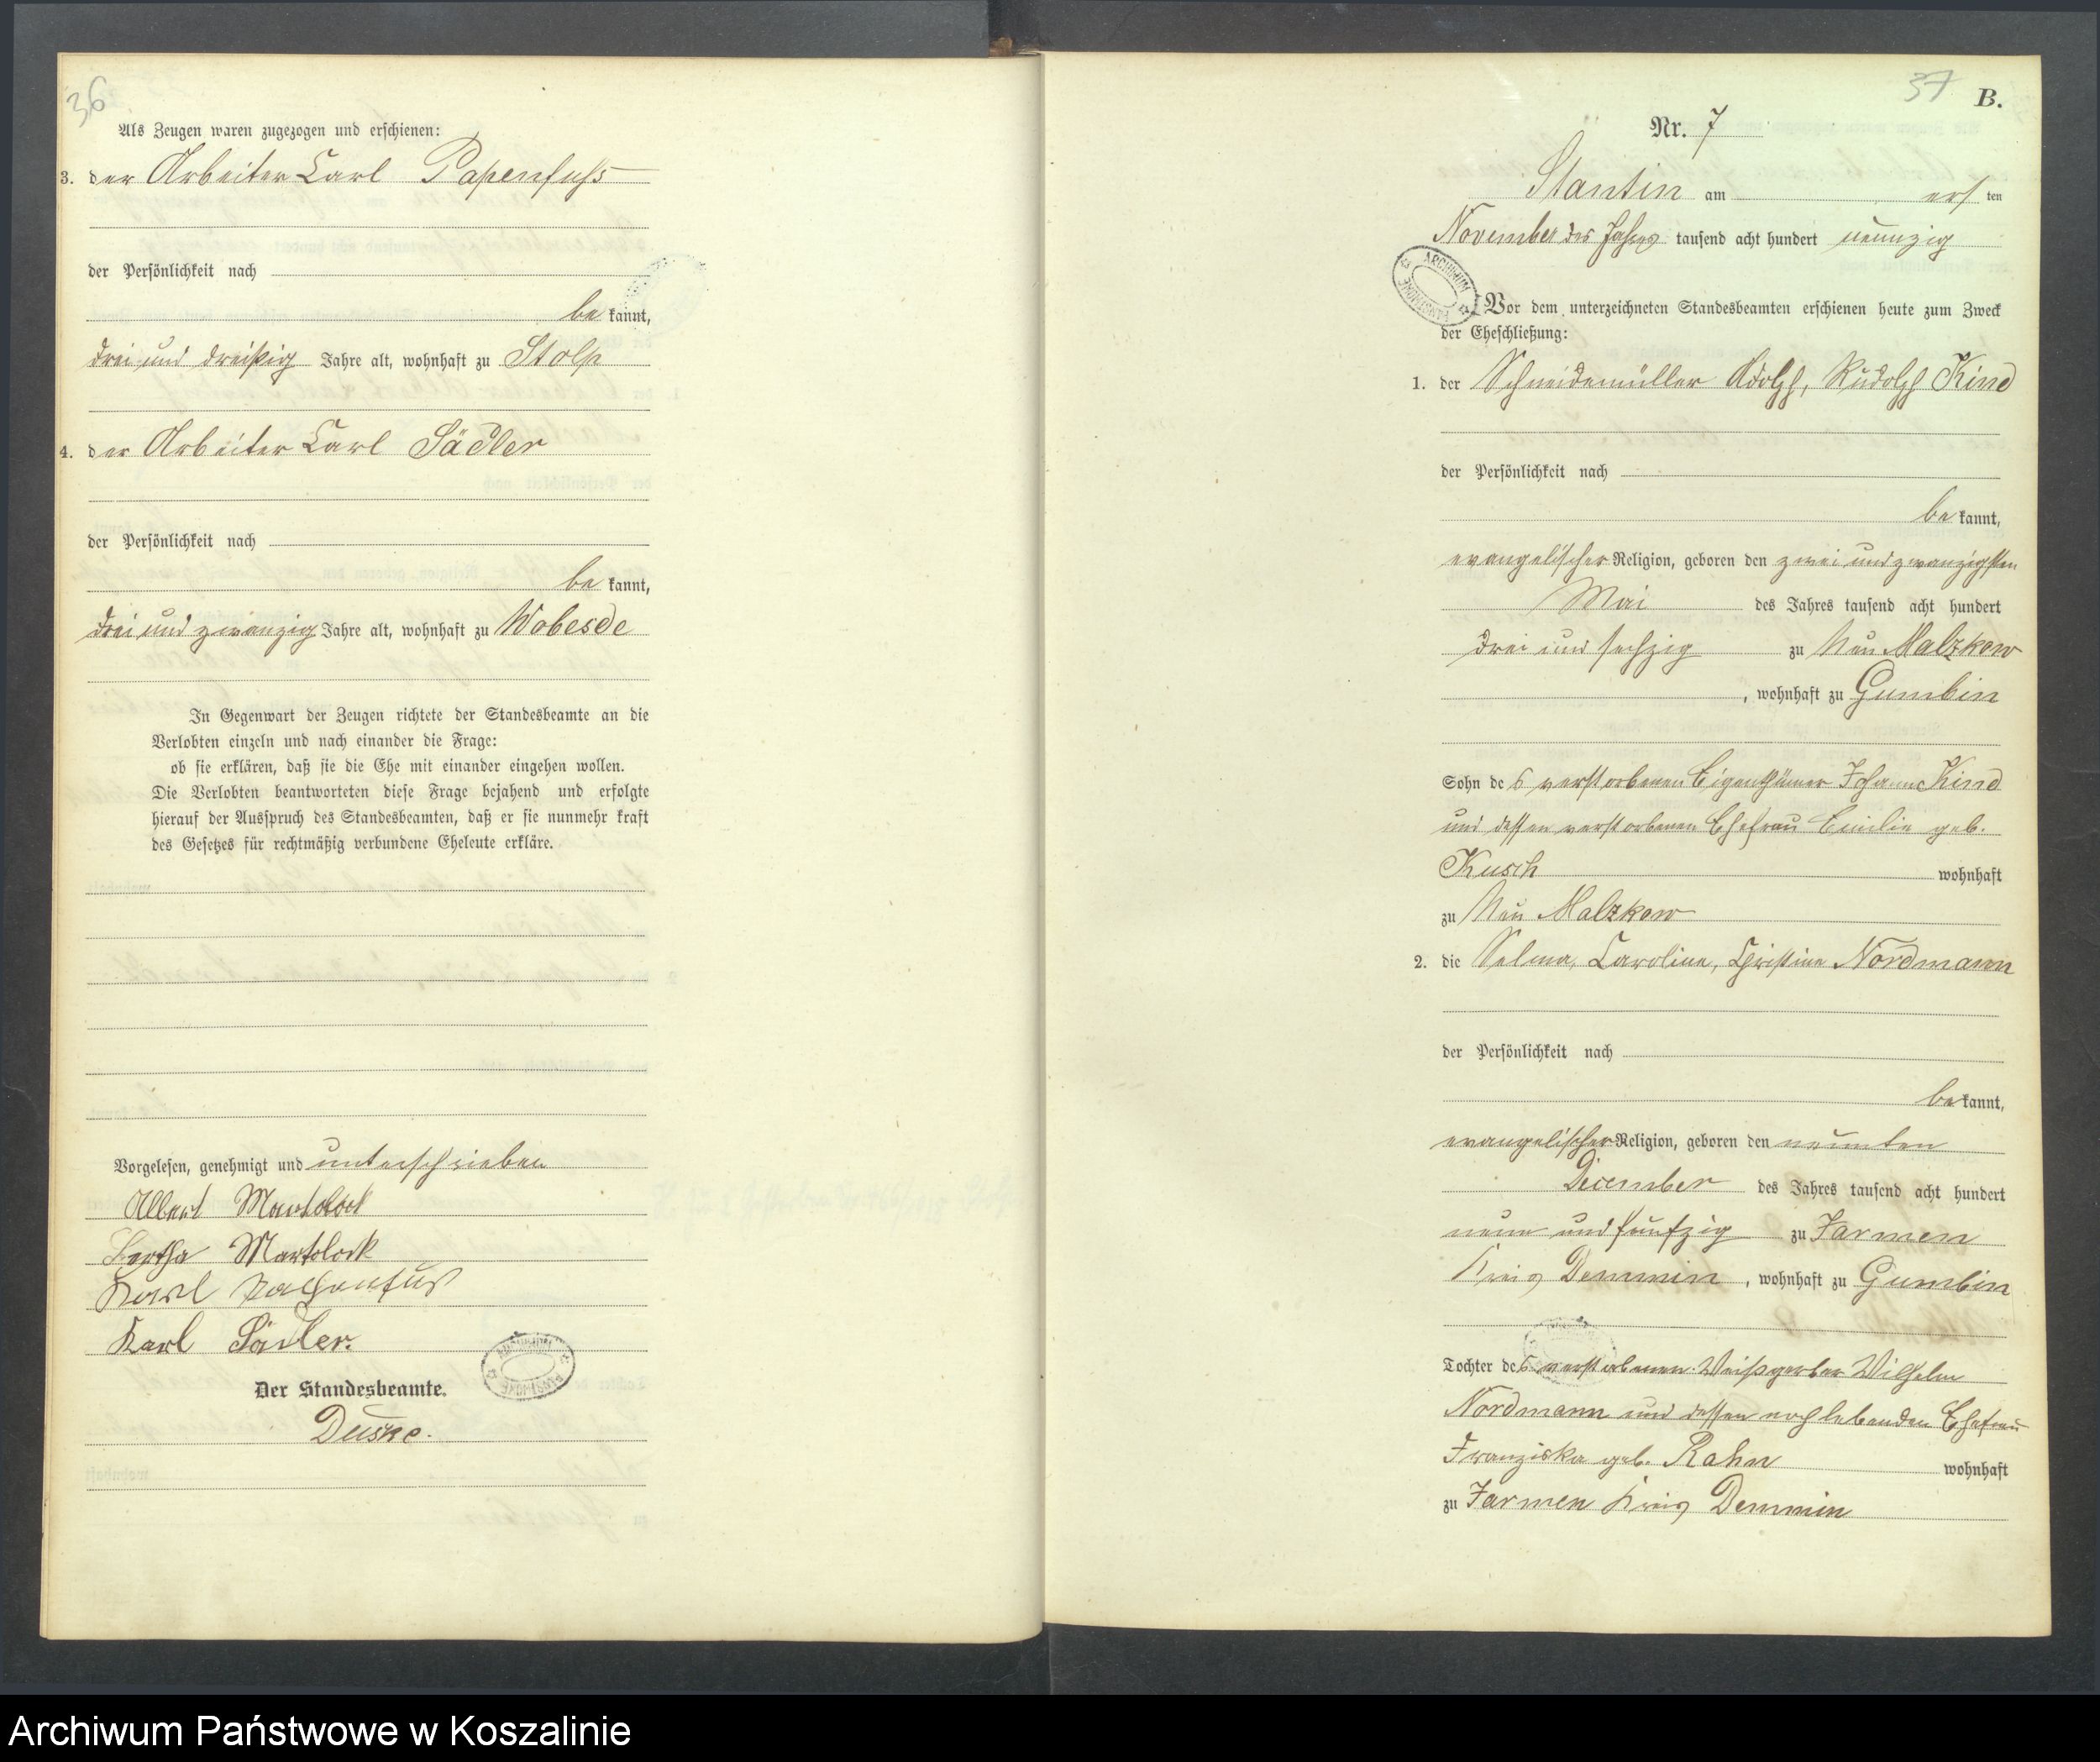 36
Als Zeugen waren zugezogen und erschienen:
3. der Arbeiter Carl Papenfuss
der Persönlichkeit nach
be kannt,
drei und dreißig Jahre alt, wohnhaft zu Stolp
4. der Arbeiter Carl Sädler
der Persönlichkeit nach
be kannt,
drei und zwanzig Jahre alt, wohnhaft zu Wobesde
In Gegenwart der Zeugen richtete der Standesbeamte an die
Verlobten einzeln und nach einander die Frage:
ob sie erklären, daß sie die Ehe mit einander eingehen wollen.
Die Verlobten beantworteten diese Frage bejahend und erfolgte
hierauf der Ausspruch des Standesbeamten, daß er sie nunmehr kraft
des Gesetzes für rechtmäßig verbundene Eheleute erkläre.
Vorgelesen, genehmigt und unterschrieben
Albert Martolock
Bertha Martolock
Karl Papenfuß
Karl Sädler.
Der Standesbeamte.
Duske.
37 B.
Nr. 7
Stantin am ers ten
November des Jahres tausend acht hundert neunzig
ARCHIWUM PAŃSTWOWE
Vor dem unterzeichneten Standesbeamten erschienen heute zum Zweck
der Eheschließung:
1. der Schneidemüller Adolph, Rudolph Kind
der Persönlichkeit nach
be kannt,
evangelischer Religion, geboren den zwei und zwanzigsten
Mai des Jahres tausend acht hundert
drei und sechzig zu Neu Malzkow
, wohnhaft zu Gumbin
Sohn des verstorbenen Eigenthümer Johann Kind
und dessen verstorbenen Ehefrau Emilie geb.
Kusch wohnhaft
zu Neu Malzkow
2. die Selma, Caroline, Christine Nordmann
der Persönlichkeit nach
be kannt,
evangelischer Religion, geboren den neunten
December des Jahres tausend acht hundert
neun und fünfzig zu Jarmen
Kreis Demmin, wohnhaft zu Gumbin
Tochter des verstorbenen Weißgerber Wilhelm
Nordmann und dessen noch lebenden Ehefrau
Franziska geb. Rahn wohnhaft
zu Jarmen Kreis Demmin
Archiwum Państwowe w Koszalinie